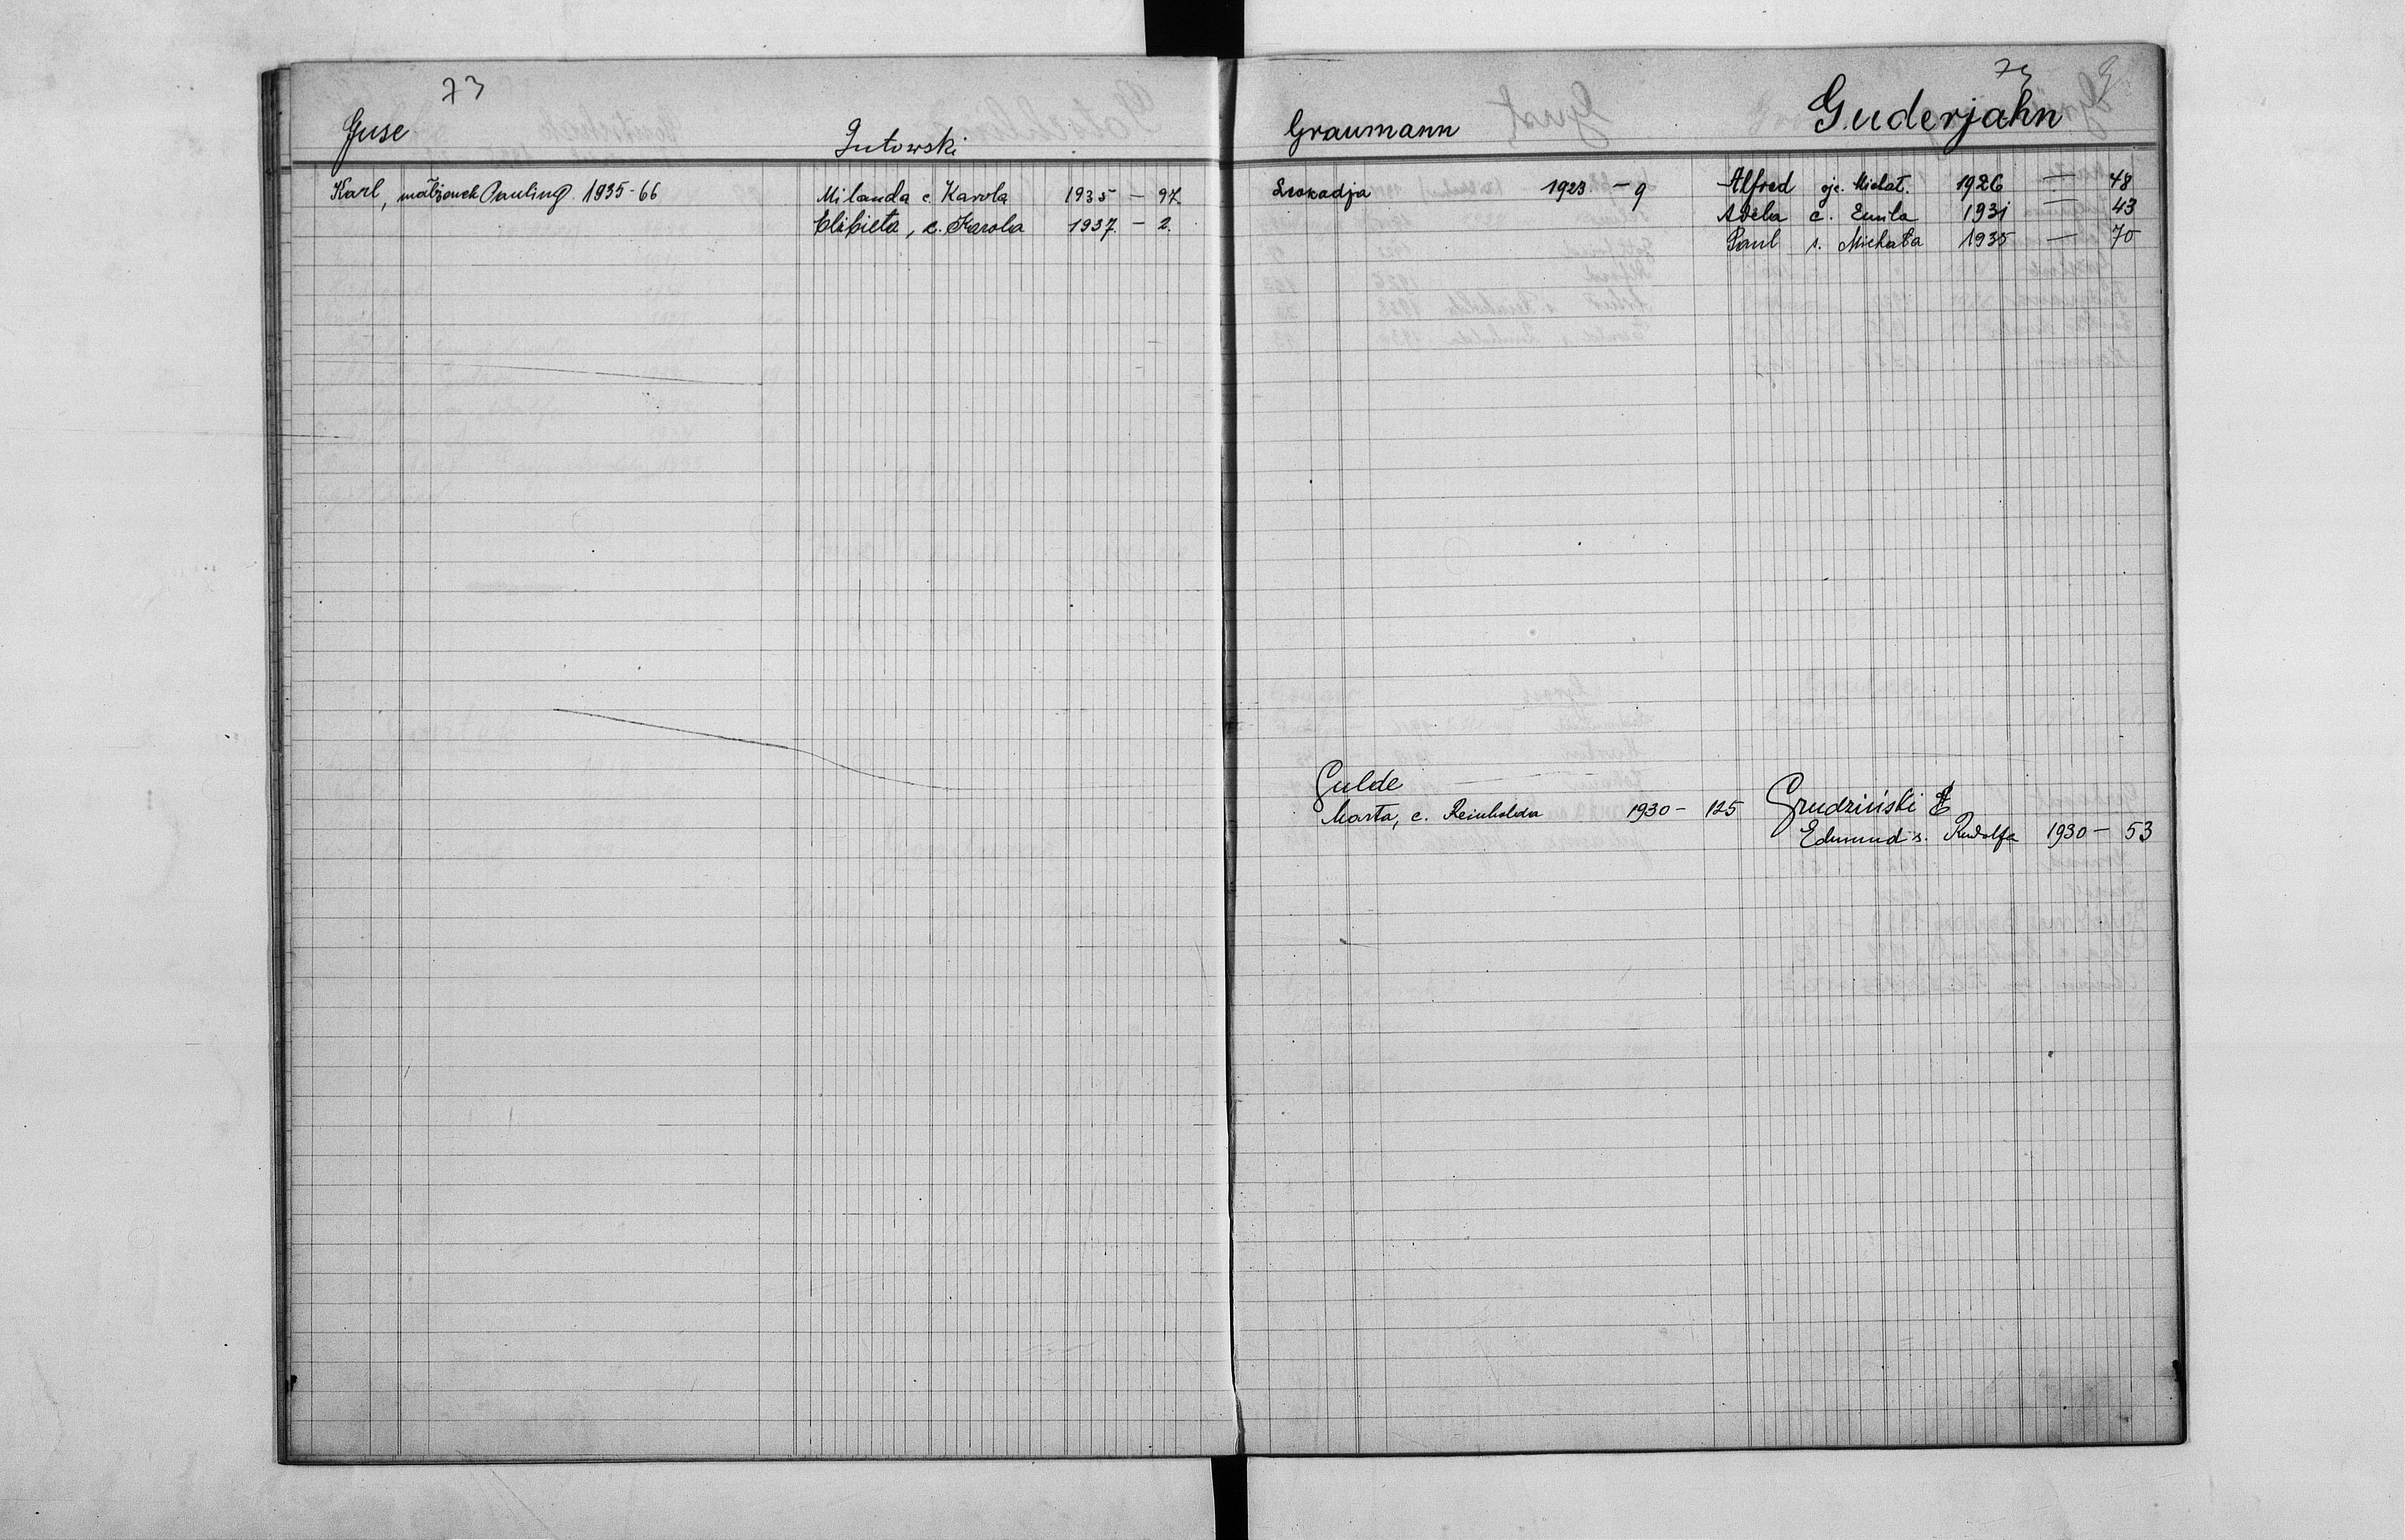 73
Guse
Karl, małżonek Pauliny 1935-66
Gutowski
Milanda c. Karola 1935 - 97.
Elżbieta, c. Karola 1937. - 2.
73
Graumann
Leokadja 1923 - 9
Guderjahn
Alfred oje. Michał. 1926 — 48
Adela c. Emila 1931 — 43
Paul s. Michała 1935 — 70
Gulde
Marta, c. Reinholda 1930 - 125
Grudziński
Edmund s. Rudolfa 1930 - 53